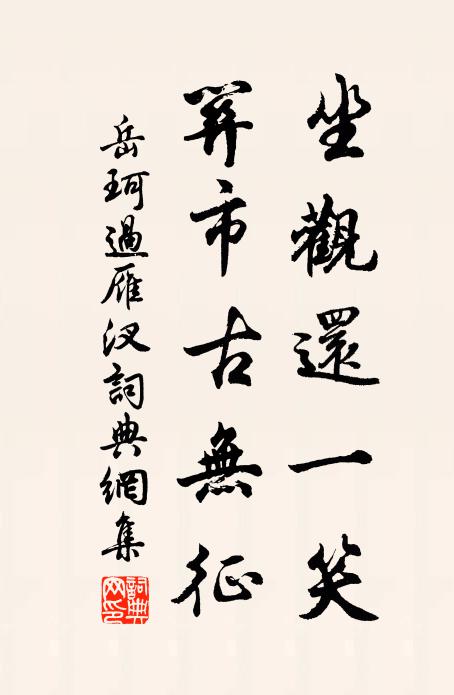 坐觀還一笑
關市古無征
岳珂過雁汊詞典網集
詞典網印